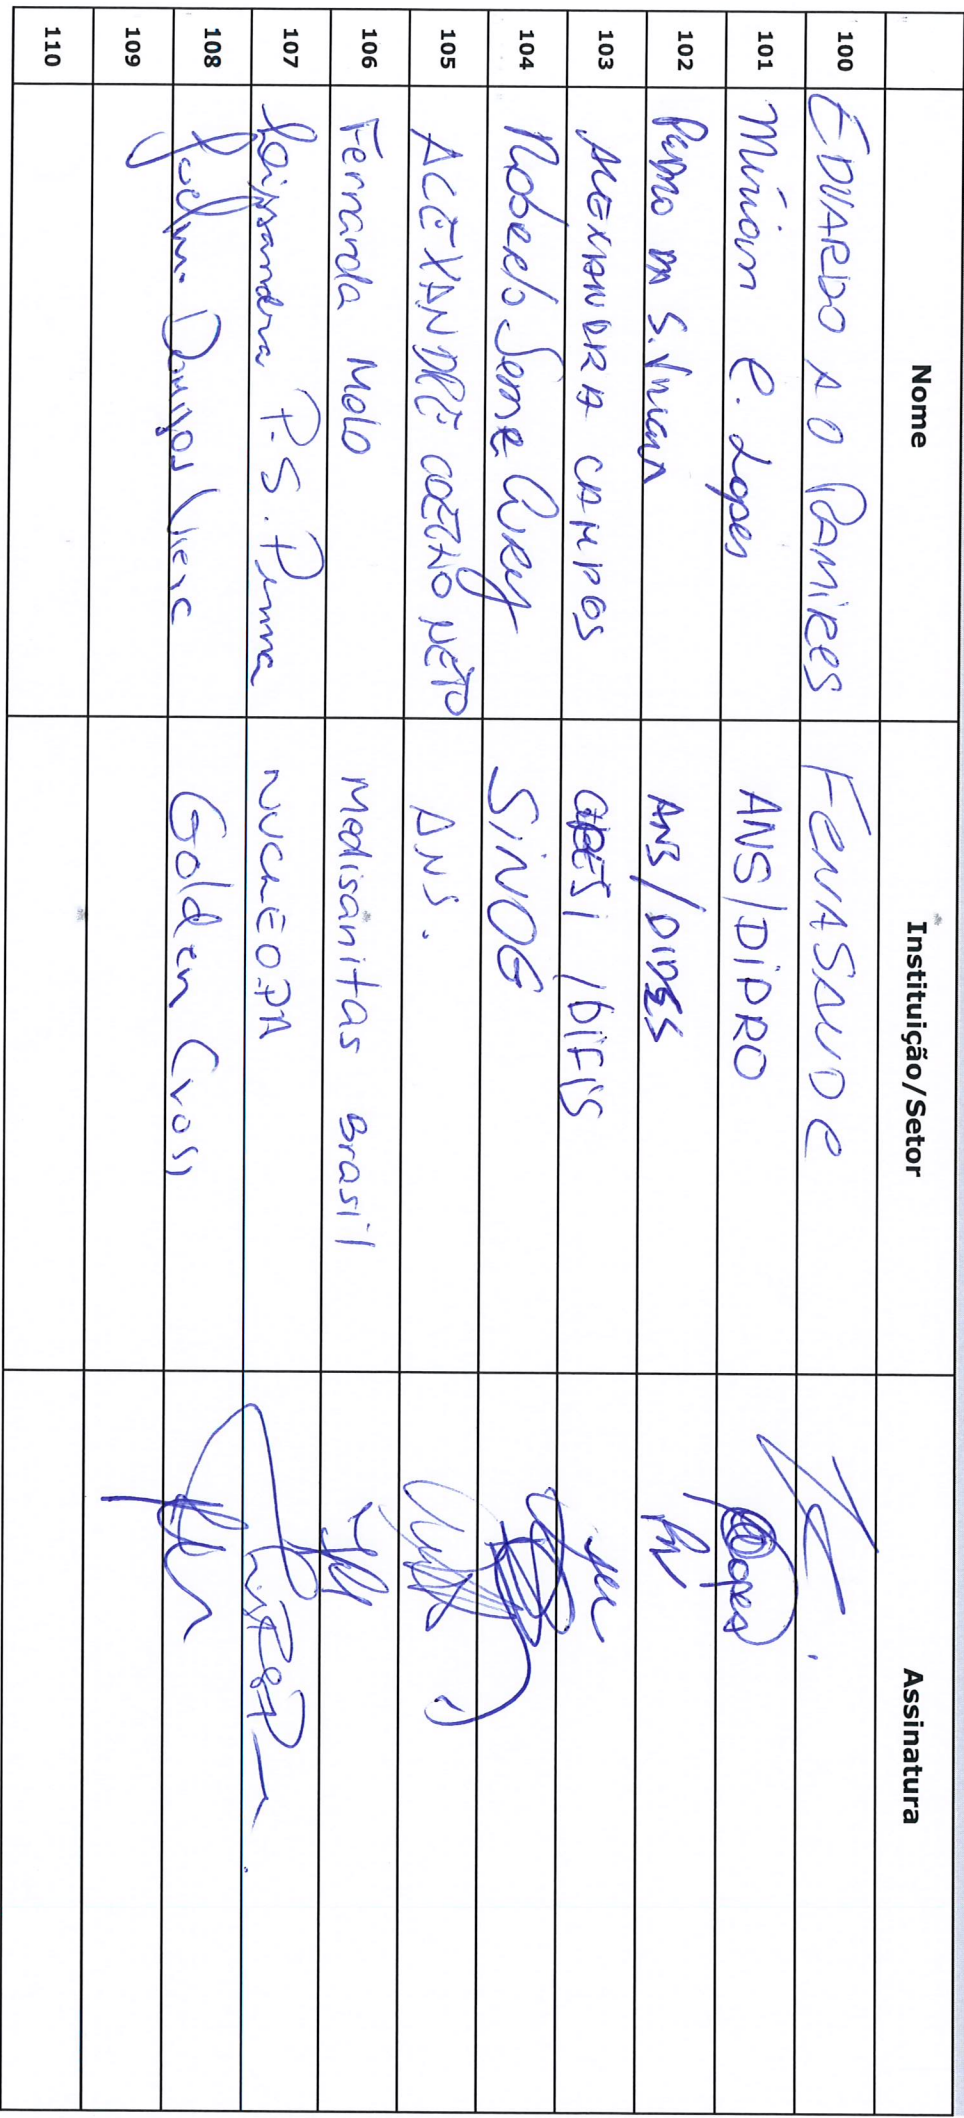 Nome Instituição/Setor Assinatura
100 EDUARDO AO RAMIRES FENASAUDE
101 Mirian C. Lopes ANS/DIPRO Lopes
102 PEDRO DA S. ANS/DIDES
103 ALEXANDRA CAMPOS /DIFIS
104 Roberto Seme Cury SINOG
105 ALEXANDRE COELHO NETO ANS.
106 Fernanda Melo Medisanitas Brasil
107 P. S. Penna NUCLEO.DA
108 Domingos Golden Cross
109
110